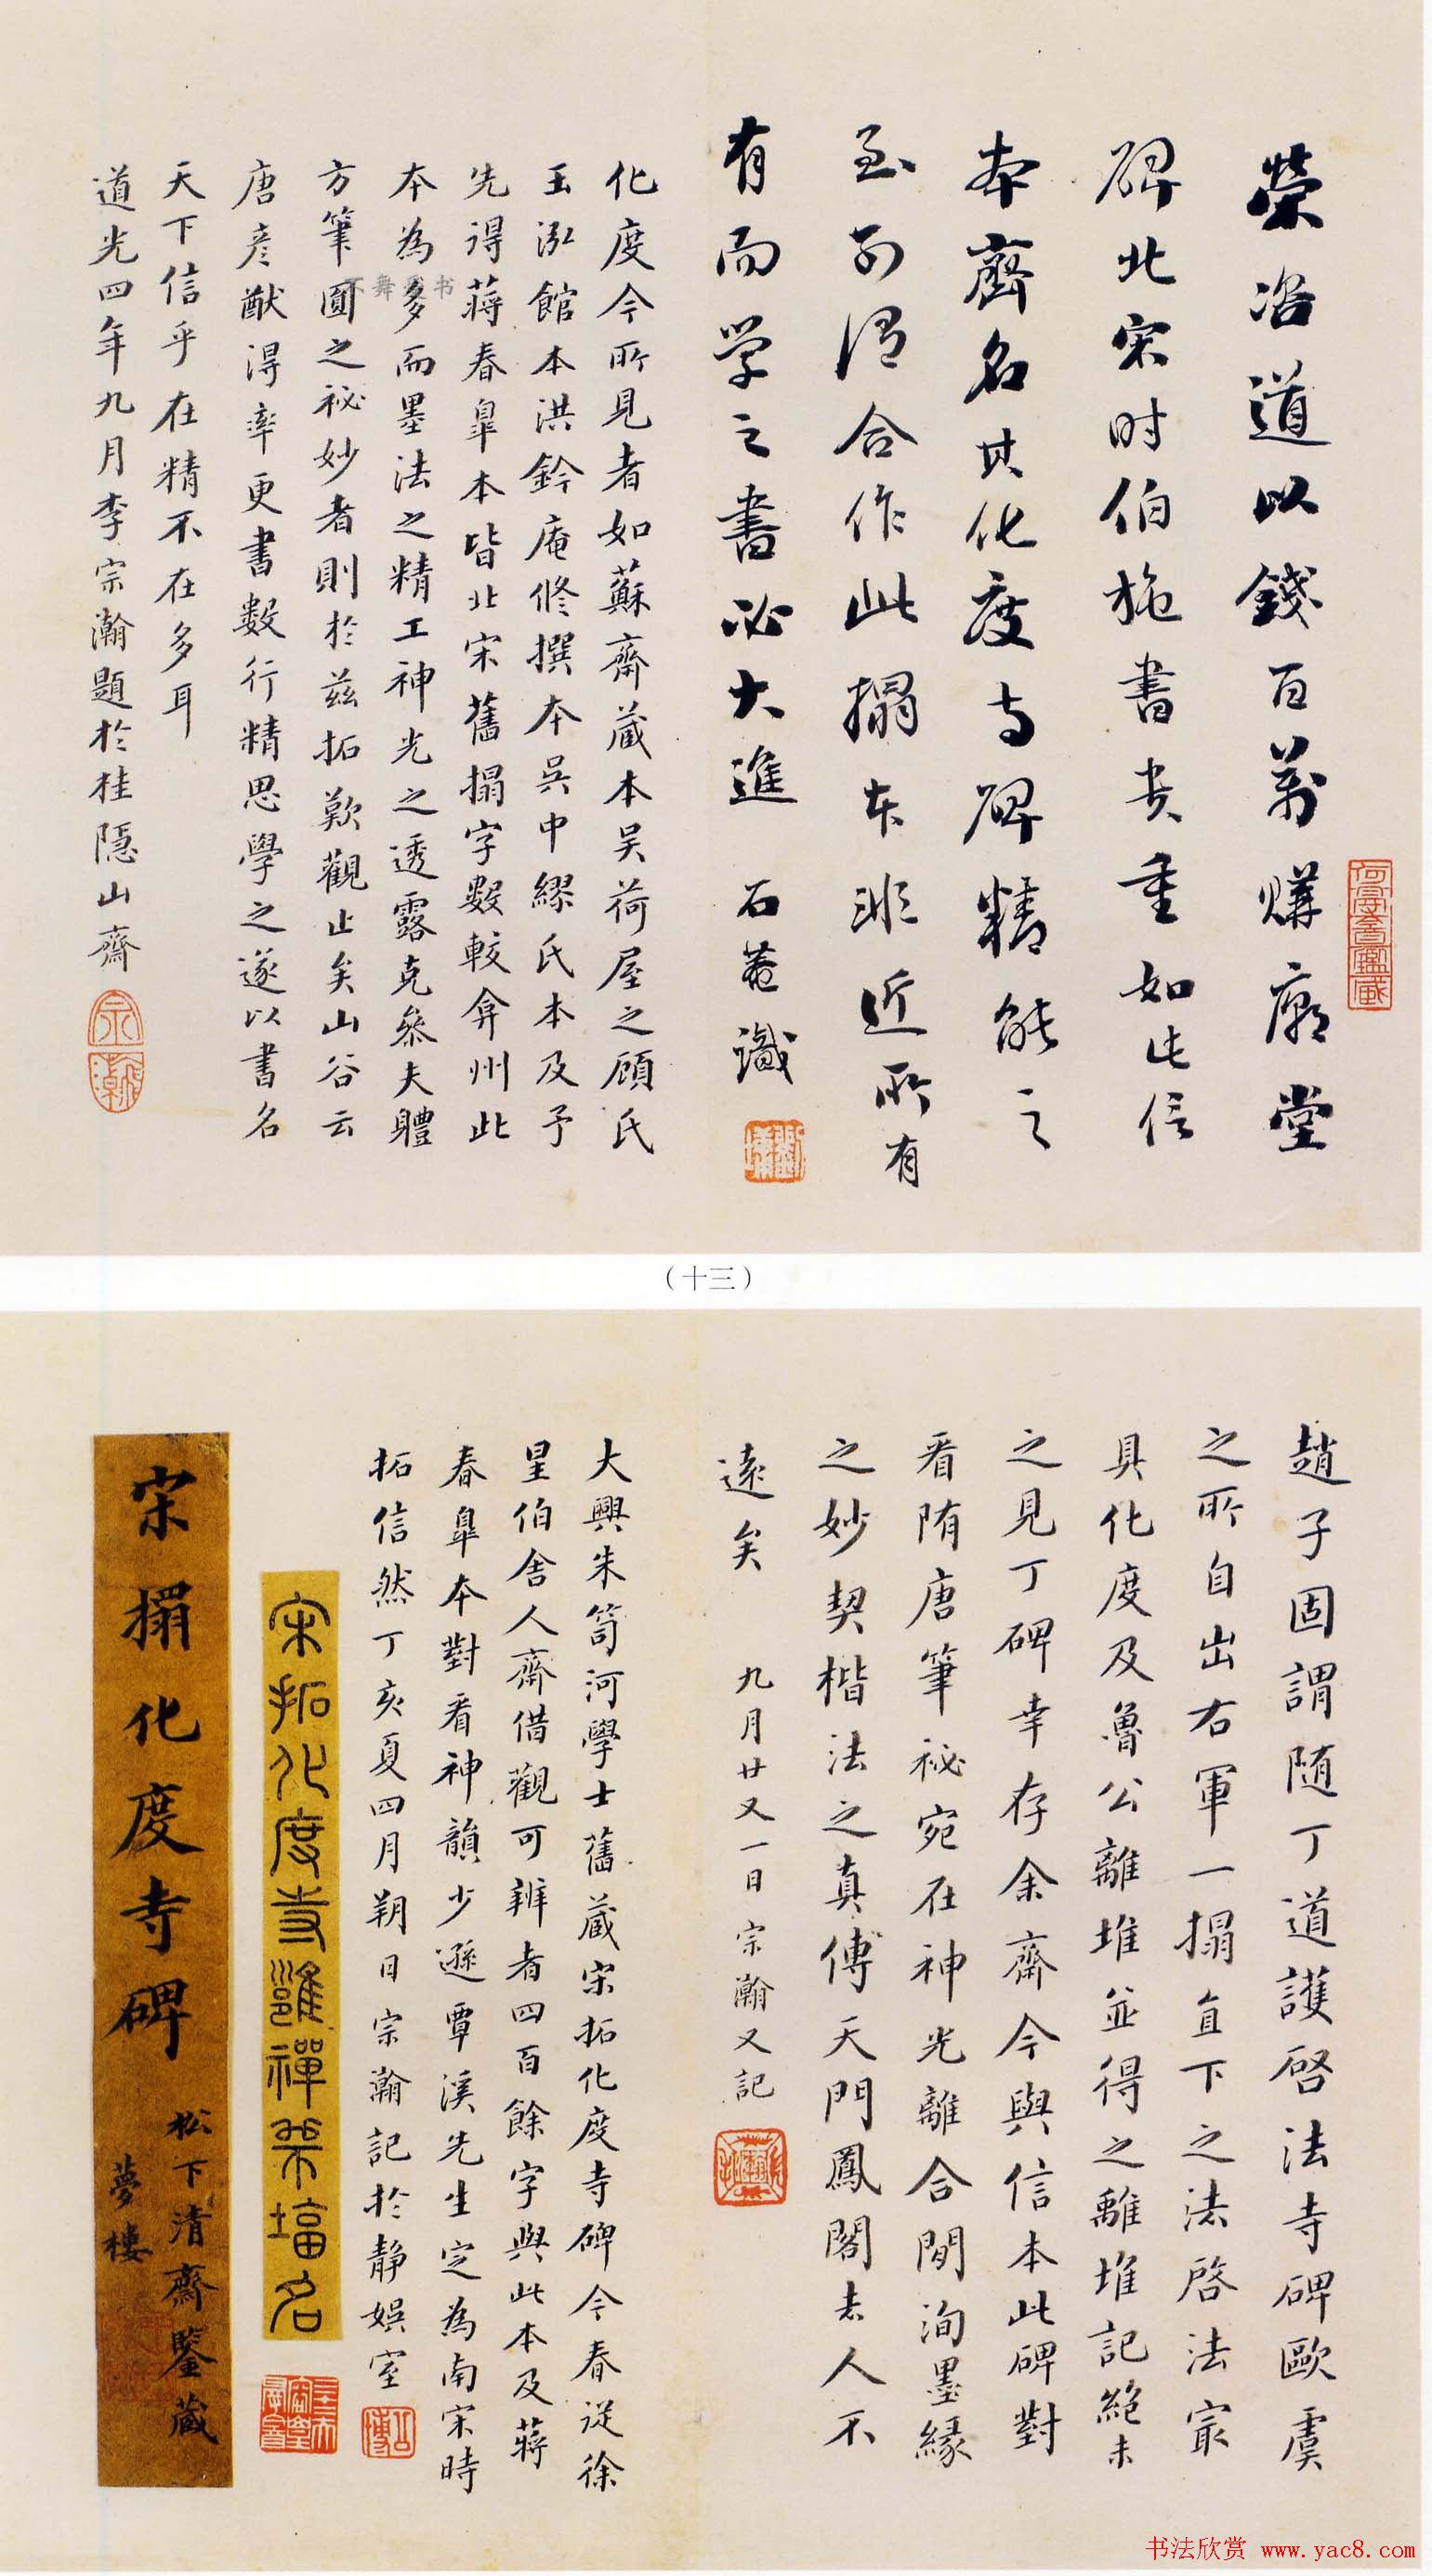 榮咨道以錢百萬購廟堂
碑北宋時伯施書貴重如此信
本齊名其化度寺碑精能之
至可謂合作此搨本非近所有
有而学之書必大進 石菴識
化度今所見者如蘇齋藏本吴荷屋之顧氏
玉泓館本洪鈐庵修撰本吳中繆氏本及予
先得蔣春臯本皆北宋舊搨字數較弇州此
本為多而墨法之精工神光之透露克叅夫體
方筆圓之祕妙者則於兹拓歎觀止矣山谷云
唐彦猷得率更書數行精思學之遂以書名
天下信乎在精不在多耳
道光四年九月李宗瀚題於桂隱山齋
宗瀚
(十三)
趙子固謂随丁道護啓法寺碑歐虞
之所自出右軍一搨直下之法啓法寂
具化度及魯公離堆並得之離堆記絶未
之見丁碑幸存余齋今與信本此碑對
看隋唐筆祕宛在神光離合間洵墨緣
之妙契楷法之真傳天門鳳閣去人不
遠矣 九月廿又一日宗瀚又記
大興朱笥河學士舊藏宋拓化度寺碑今春從徐
星伯舍人齋借觀可辨者四百餘字與此本及蔣
春臯本對看神韻少遜覃溪先生定為南宋時
拓信然丁亥夏四月朔日宗瀚記於靜娯室
宋拓化度寺邕禪師塔名
宋搨化度寺碑
松下清齋鑒藏
夢樓
书法欣赏 www.yac8.com